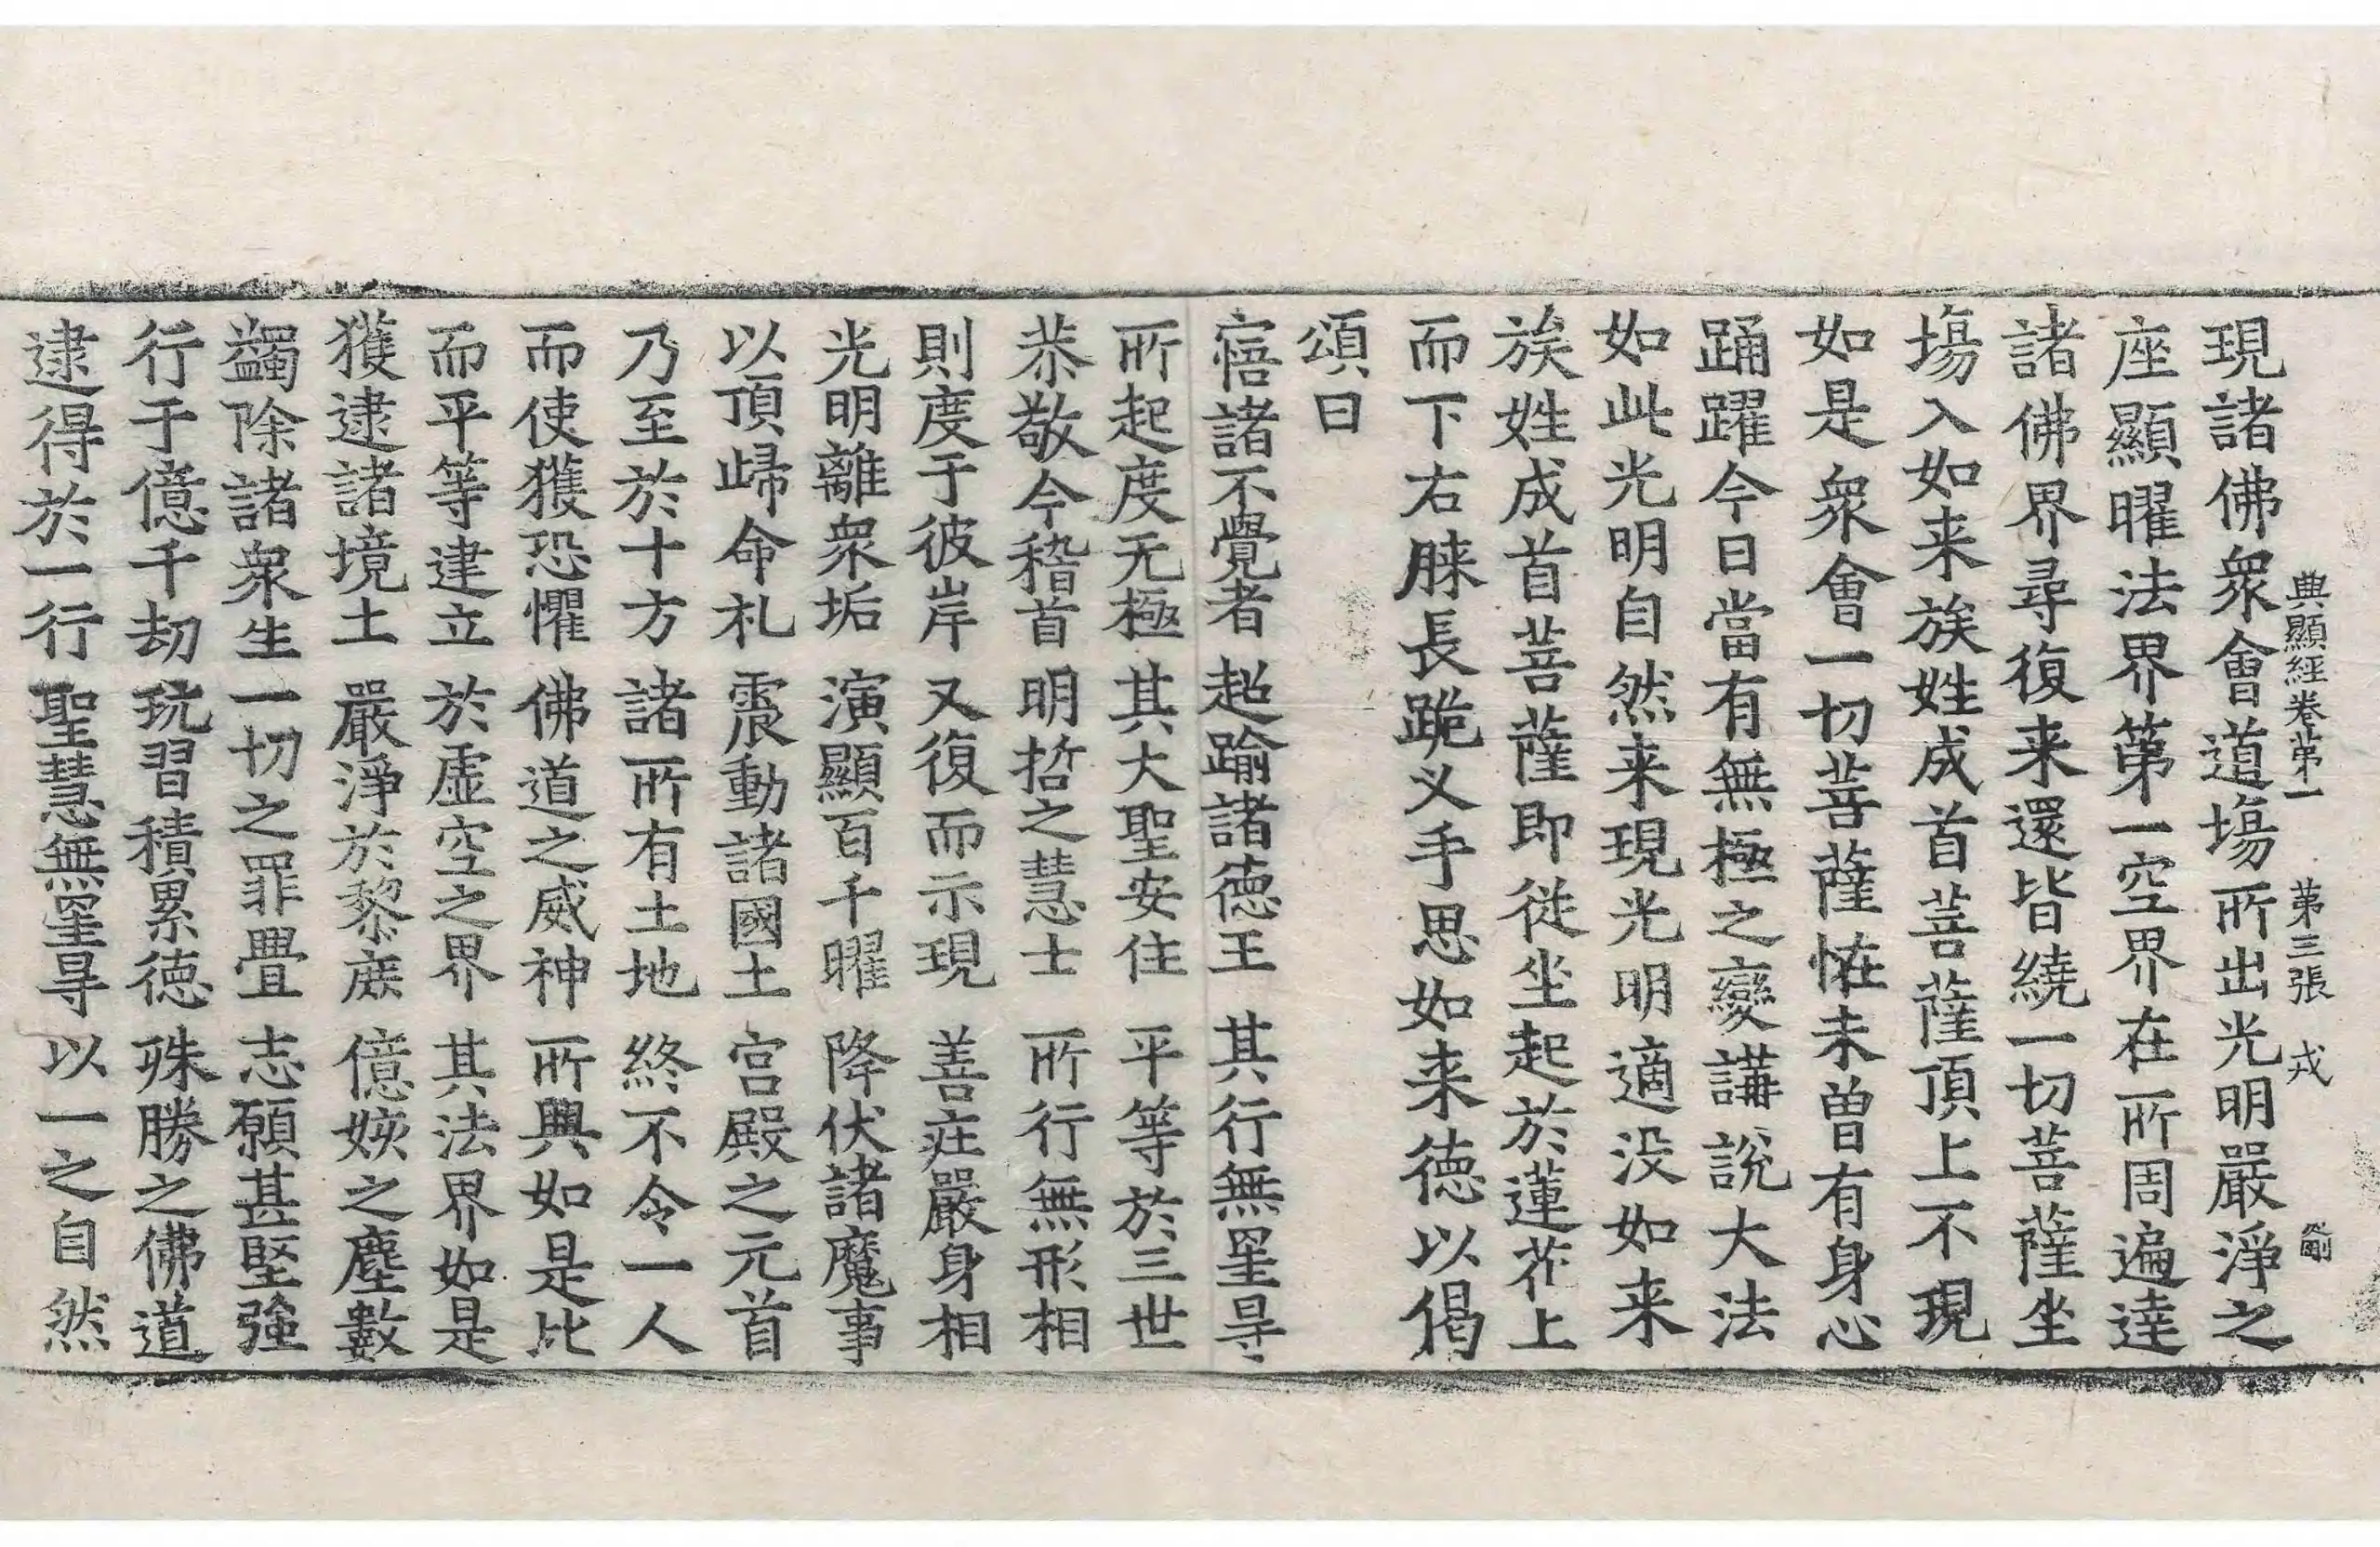 典顯經卷第一 第三張 戎
現諸佛衆會道塲所出光明嚴淨之
座顯曜法界第一空界在所周遍達
諸佛界尋復来還皆繞一切菩薩坐
塲入如来族姓成首菩薩頂上不現
如是衆會一切菩薩恠未曾有身心
踊躍今日當有無極之變講說大法
如此光明自然来現光明適没如来
族姓成首菩薩即從坐起於蓮花上
而下右膝長跪叉手思如来德以偈
頌曰
寤諸不覺者 超踰諸德王 其行無罣㝵
所起度无極 其大聖安住 平等於三世
恭敬今稽首 明哲之慧士 所行無形相
則度于彼岸 又復而示現 善莊嚴身相
光明離衆垢 演顯百千曜 降伏諸魔事
以頂歸命礼 震動諸國土 宮殿之元首
乃至於十方 諸所有土地 終不令一人
而使獲恐懼 佛道之威神 所興如是比
而平等建立 於虛空之界 其法界如是
獲逮諸境土 嚴淨於黎庶 億姟之塵數
蠲除諸衆生 一切之罪疊 志願甚堅強
行于億千劫 玩習積累德 殊勝之佛道
逮得於一行 聖慧無罣㝵 以一之自然